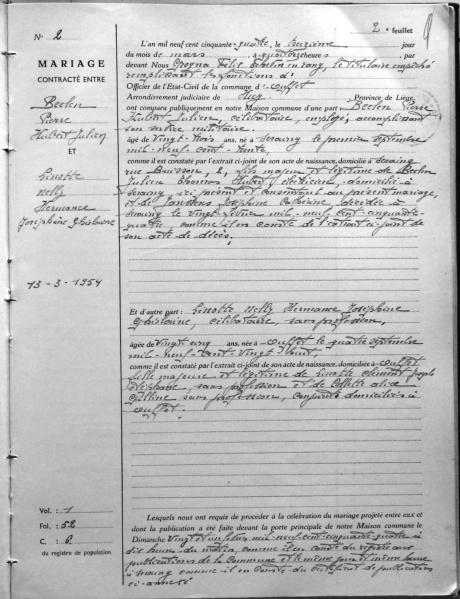 2e feuillet
No 2
MARIAGE
CONTRACTÉ ENTRE
Beclen
Pierre
Hubert Julien
ET
Linotte
Nelly
Hermance
Josephine Ghislaine
13-3-1954
Vol. : 1
Fol. : 52
C. : 6
du registre de population
L'an mil neuf cent cinquante-quatre, le treizième jour
du mois de mars, à quatorze heures, par
devant Nous
remplissant les fonctions d'
Officier de l'État-Civil de la commune d'Ouffet
Arrondissement judiciaire de Huy, Province de Liège,
ont comparu publiquement en notre Maison commune d'une part : Beclen Pierre
Hubert Julien, célibataire, employé, accomplissant
son service militaire,
âgé de vingt-trois ans, né à Seraing le premier septembre
mil-neuf-cent-trente
comme il est constaté par l'extrait ci-joint de son acte de naissance, domicilié à Seraing
rue Buisson, 2, fils majeur et légitime de Beclen
Julien Thomas Hubert, électricien, domicilié à
Seraing, ici présent et consentant au présent mariage
et de Josephine Catherine, décédée à
Seraing le vingt mil-neuf-cent-cinquante-
quatre, comme il en conste de l'extrait ci-joint de
son acte de décès,
Et d'autre part : Linotte Nelly Hermance Joséphine
Ghislaine, célibataire, sans profession,
âgée de vingt-cinq ans, née à Ouffet le quatre septembre
mil-neuf-cent-vingt-huit,
comme il est constaté par l'extrait ci-joint de son acte de naissance, domiciliée à Ouffet
fille majeure et légitime de Linotte Clément Joseph
sans profession et de Collette Alice
sans profession, conjoints domiciliés à
Ouffet.
Lesquels nous ont requis de procéder à la célébration du mariage projeté entre eux et
dont la publication a été faite devant la porte principale de notre Maison commune le
Dimanche vingt et un mil-neuf-cent-cinquante-quatre à
dix heures du matin, comme il en conste du registre aux
publications de la Commune et le même jour et même heure
à Seraing comme il en conste du certificat de publication
ci-annexé